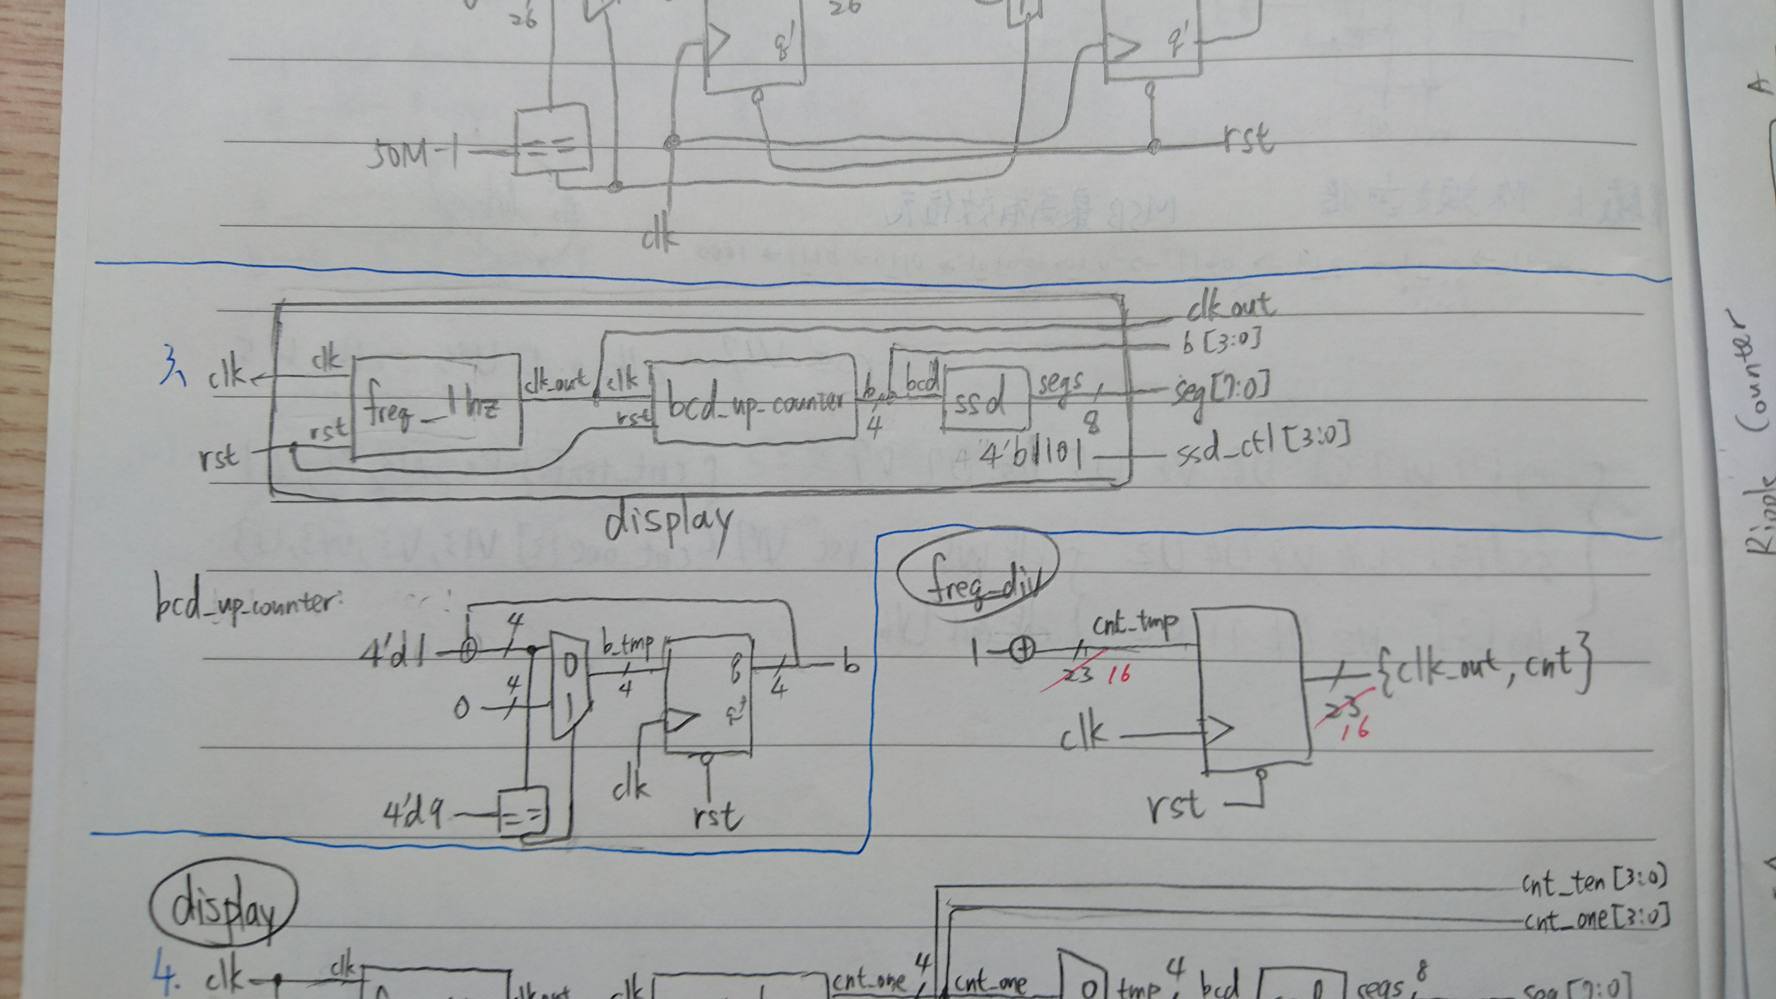 26
26
q'
q'
50M-1
==
rst
clk
3、
clk
clk
freq_1hz
rst
rst
clk_out
clk
rst
bcd_up_counter
b
4
bcd
ssd
segs
8
4'b1101
clk_out
b[3:0]
seg[7:0]
ssd_ctl[3:0]
display
bcd_up_counter:
4'd1
4
0
4
0
1
b_tmp
4
q
q'
4
b
clk
rst
4'd9
==
freq_div
1
cnt_tmp
23 16
{clk_out, cnt}
23
16
clk
rst
display
cnt_ten[3:0]
cnt_one[3:0]
4.
clk
clk
clkout
clk
cnt_one
4
cnt_one
0
tmp
4
bcd
segs
8
seg[7:0]
Ripple Counter
A